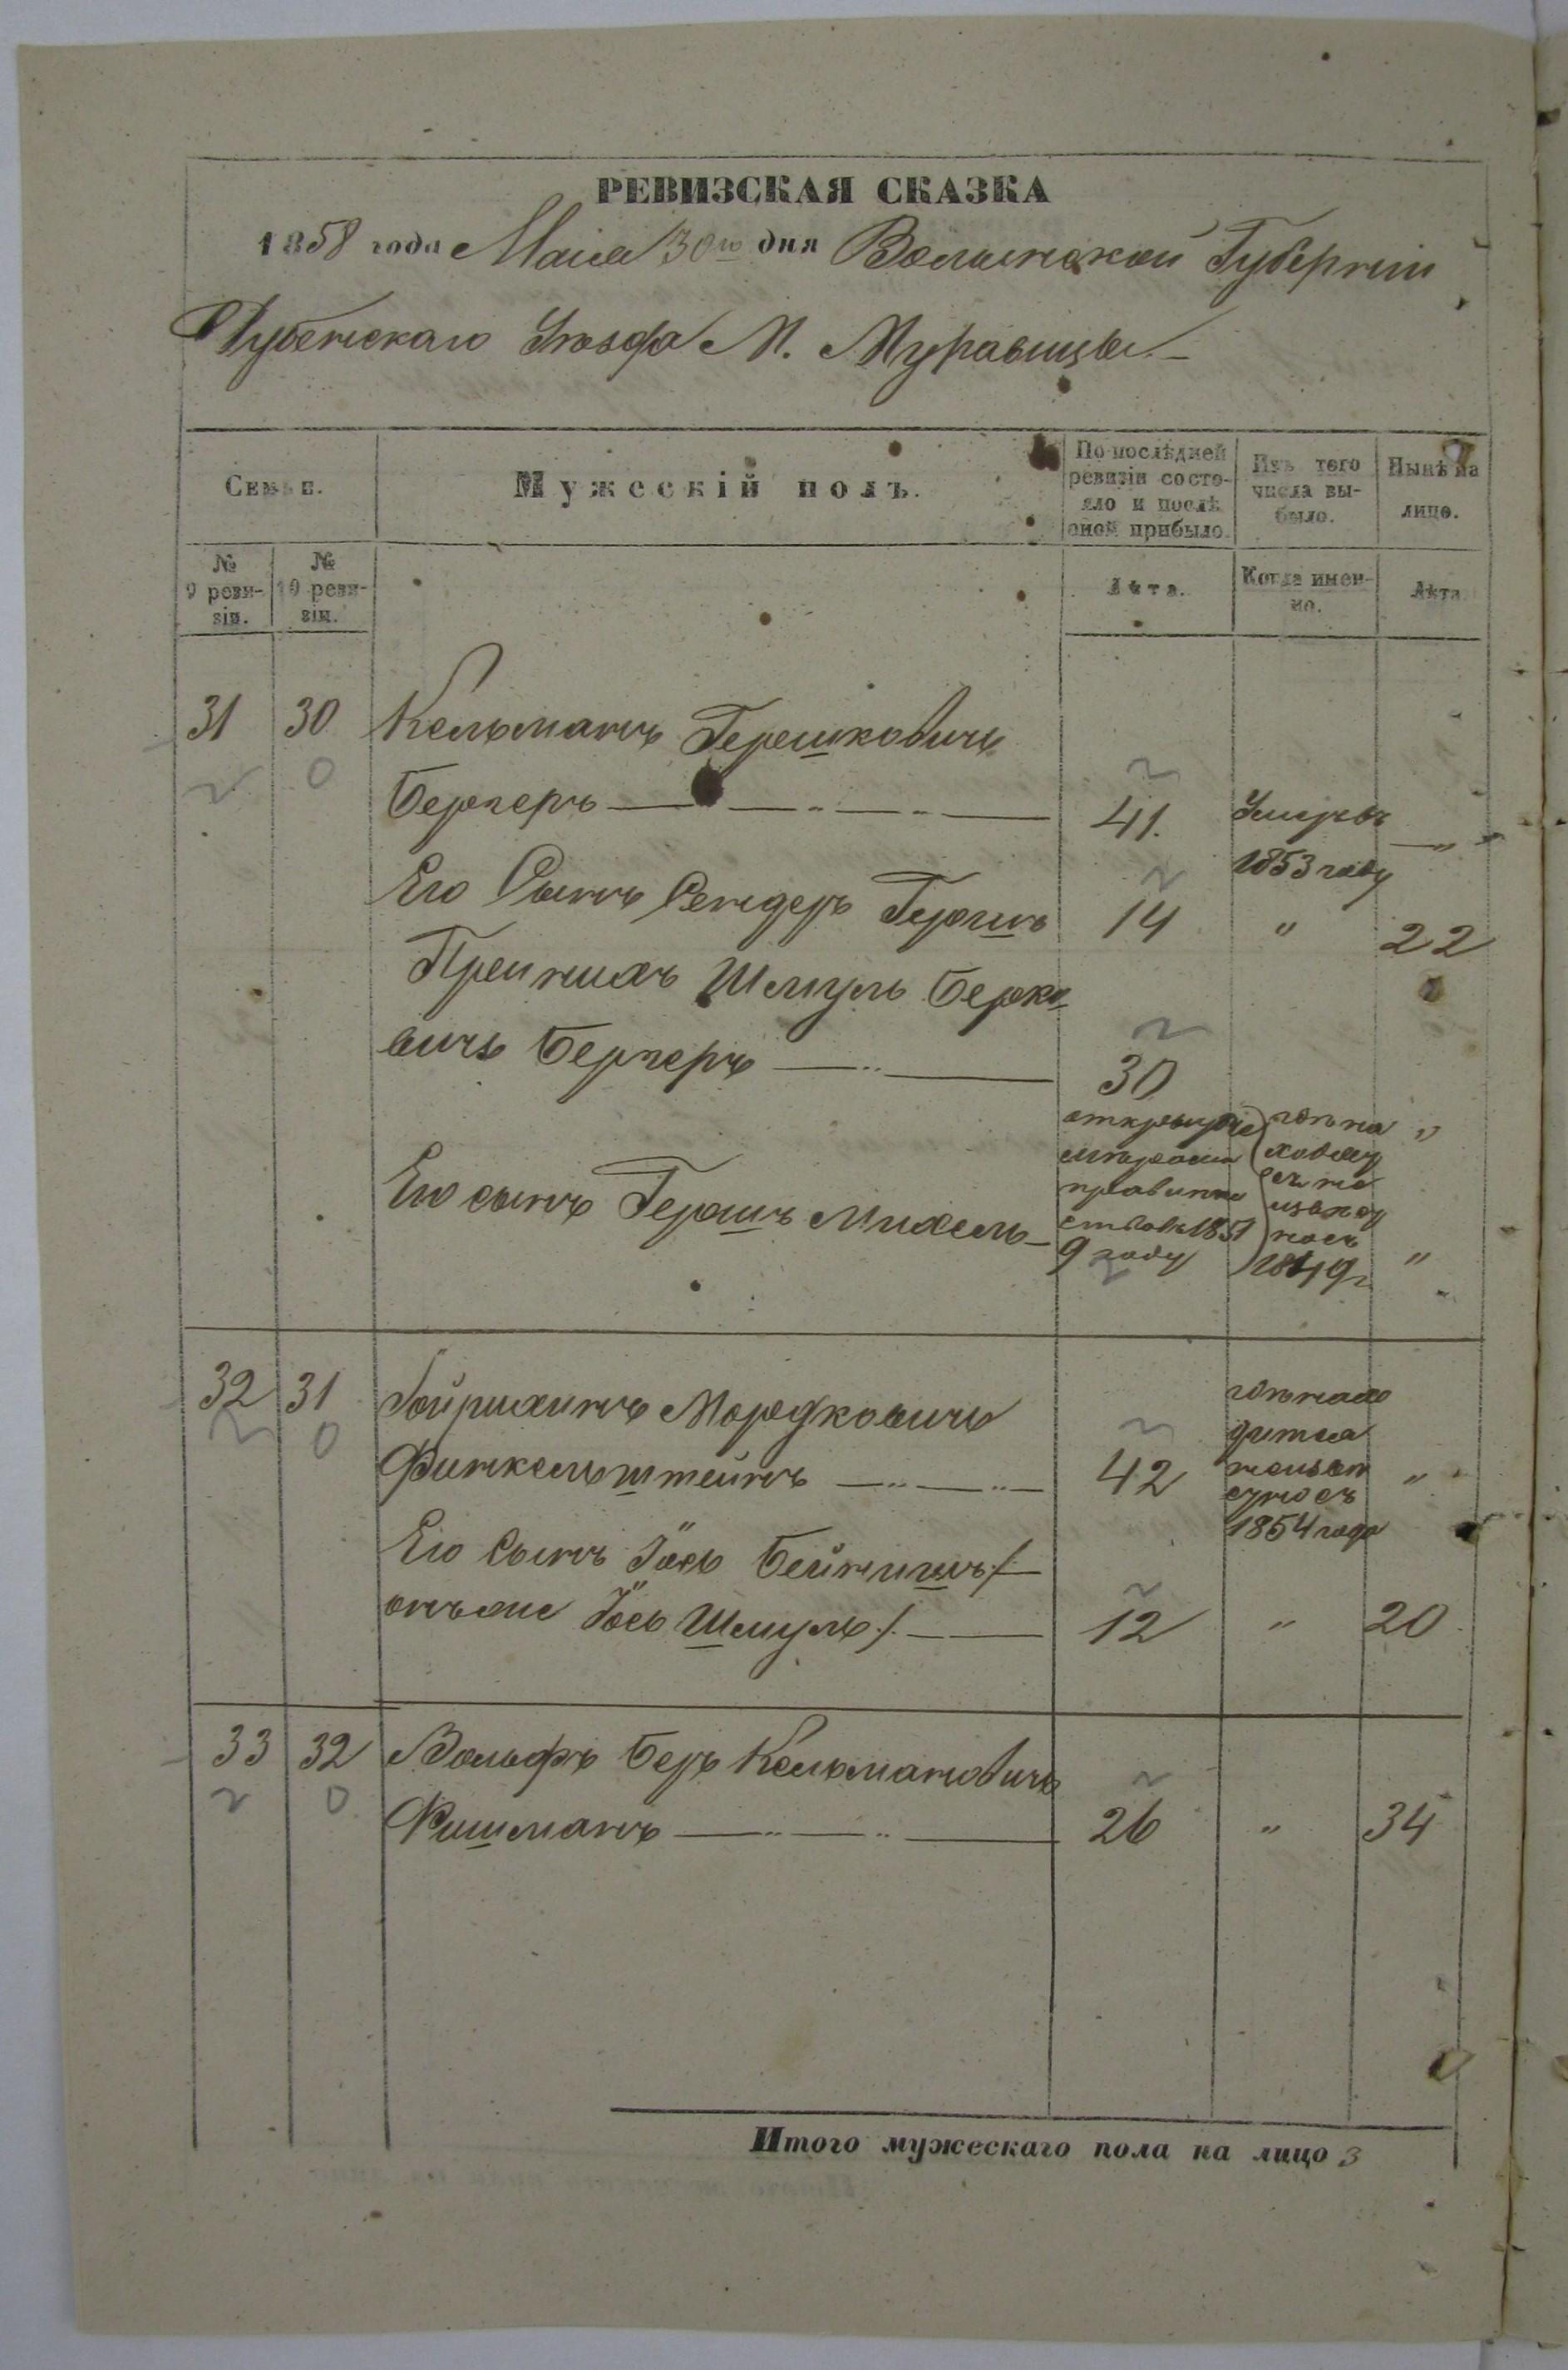 РЕВИЗСКАЯ СКАЗКА
1858 года Маія 30го дня Волынской Губерніи
Дубенскаго Уѣзда М. Муравицы
Семьи.
Мужескій полъ.
По послѣдней
ревизіи состо-
яло и послѣ
оной прибыло.
Изъ того
числа вы-
было.
Нынѣ на
лицо.
№
9 реви-
зіи.
№
10 реви-
зіи.
Лѣта.
Когда имен-
но.
Лѣта
31 30 Кельманъ Гершковичъ
Бергеръ 41. Умеръ "
1853 году
Его Сынъ Сендеръ Гершъ 14 " 22
Шмуль Берко
вичъ Бергеръ 30
Его сынъ Гершъ Михель 9
1851
году
1849 г
"
"
32 31 Мордковичъ
Финкельштейнъ 42 "
1854 года
Его Сынъ Іось
онъ же Іось Шмуль/. 12 " 20
33 32 Вольфъ Беръ Кельмановичъ
Фишманъ 26 " 34
Итого мужескаго пола на лицо 3